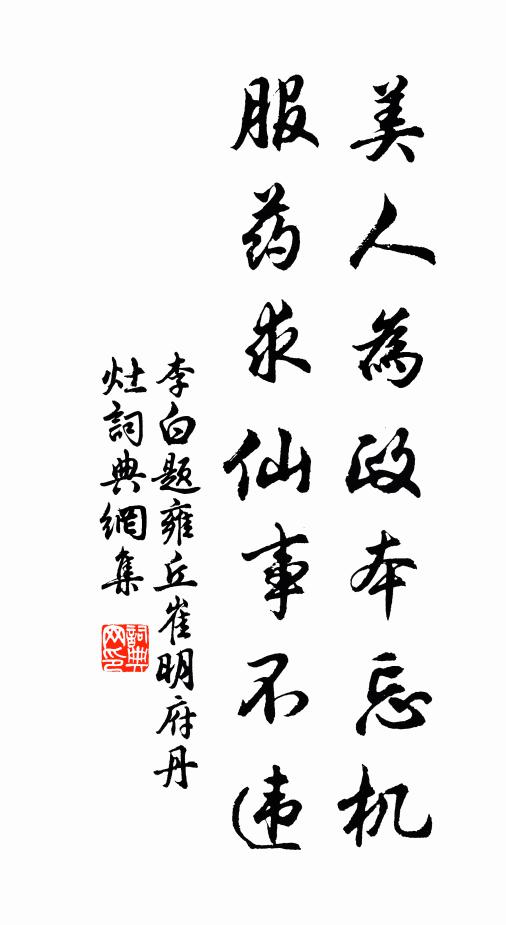 美人為政本忘机
服药求仙事不违
李白题雍丘崔明府丹
灶詞典網集
詞典
网印